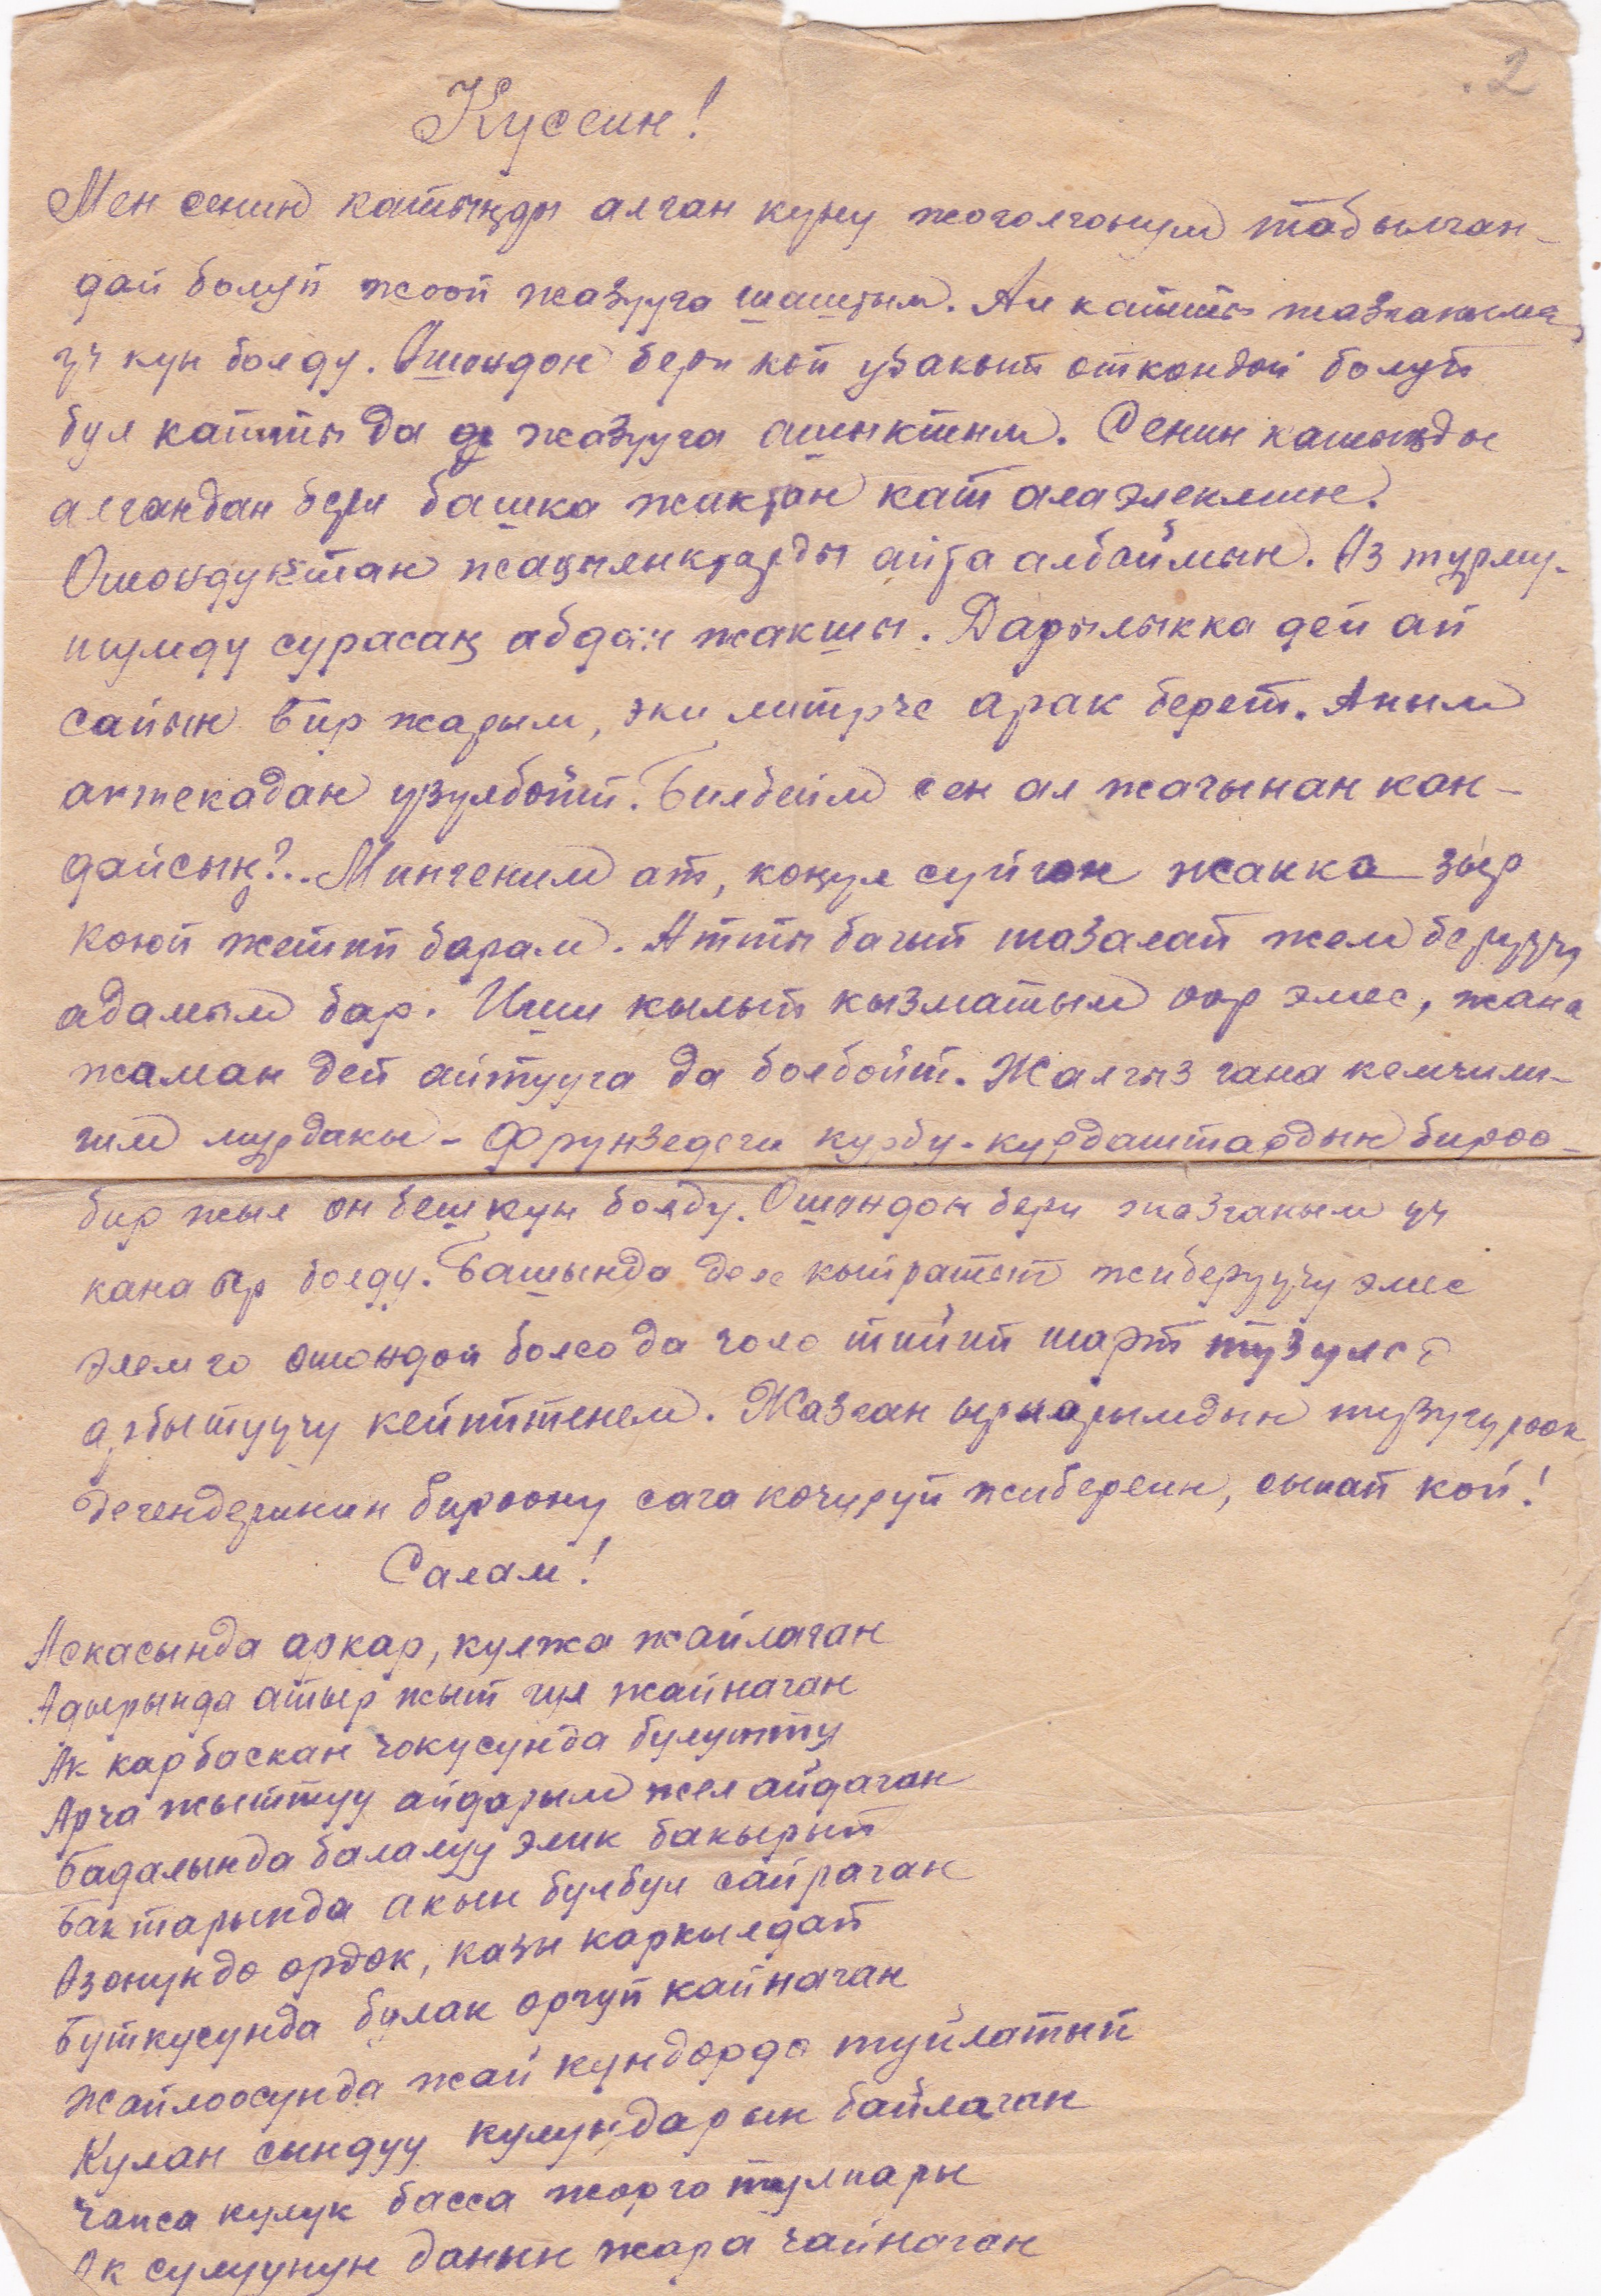 2
Куссин!
Мен сенин катыңды алган куну жоголгонум табылган-
дай болуп жооп жазууга шаштым. Ал катты жазганыма
уч кун болду. Ошондон бери коп убакыт откондой болуп
бул катты да жазууга ашыктым. Сенин катыңды
алгандан бери башка жактан кат ала элекмин.
Ошондуктан жаңылыктарды айта албаймын. Оз турму-
шумду сурасаң абдан жакшы. Дарылыкка деп ай
сайын бир жарым, эки литрче арак берет. Аным
аптекадан узулбойт. Билбейм сен ал жагынан кан-
дайсың?.. Мингеним ат, коңул суйгон жакка зыр
коюп жетип барам. Атты багып тазалап жем беруучу
адамым бар. Иши кылып кызматым оор эмес, жана
жаман деп айтууга да болбойт. Жалгыз гана кемчили-
гим мурдакы - Фрунзедеги курбу-курдаштардын бироо-
бир жыл он беш кун болду. Ошондон бери жазганым уч
кана ыр болду. Башында деле кыйратып жиберуучу элес
элем го ошондой болсо да чоло тийип шарт тузулсо
арбытуучу кейиптенем. Жазган ырларымдын тузугуроок
дегендеринин бироону сага кочуруп жиберейин, сынап кой!
Салам!
Аскасында аркар, кулжа жайлаган
Адырында атыр жыт гул жайнаган
Ак кар баскан чокусунда булутту
Арча жыттуу айдарым жел айдаган
Бадалында балалуу элик бакырып
Бактарында акын булбул сайраган
Озонундо ордок, казы каркылдап
Буткусунда булак орчуп кайнаган
Жайлоосунда жай кундордо туйлатып
Кулан сындуу кулундарын байлаган
Чапса кулук басса жорго тулпары
Ак сулуунун данын жара чайнаган